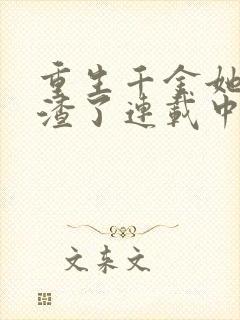 重生千金她
渣了連載中
文来文